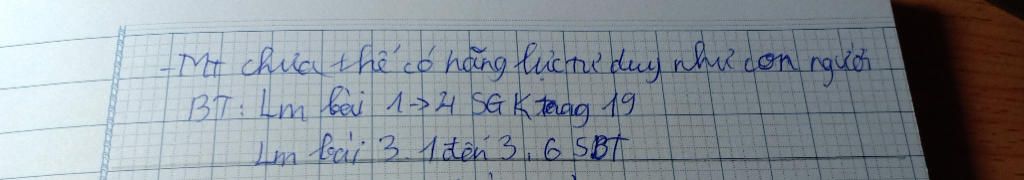 - MT chưa thể có năng lực tư duy như con người
BT: Lm bài 1→4 SGK trang 19
Lm bài 3.1 đến 3.6 SBT